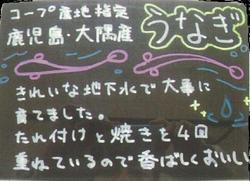 コープ産地指定
鹿児島・大隅産
うなぎ
きれいな地下水で大事に
育てました。
たれ付けと焼きを4回
重ねているので香ばしくおいしい